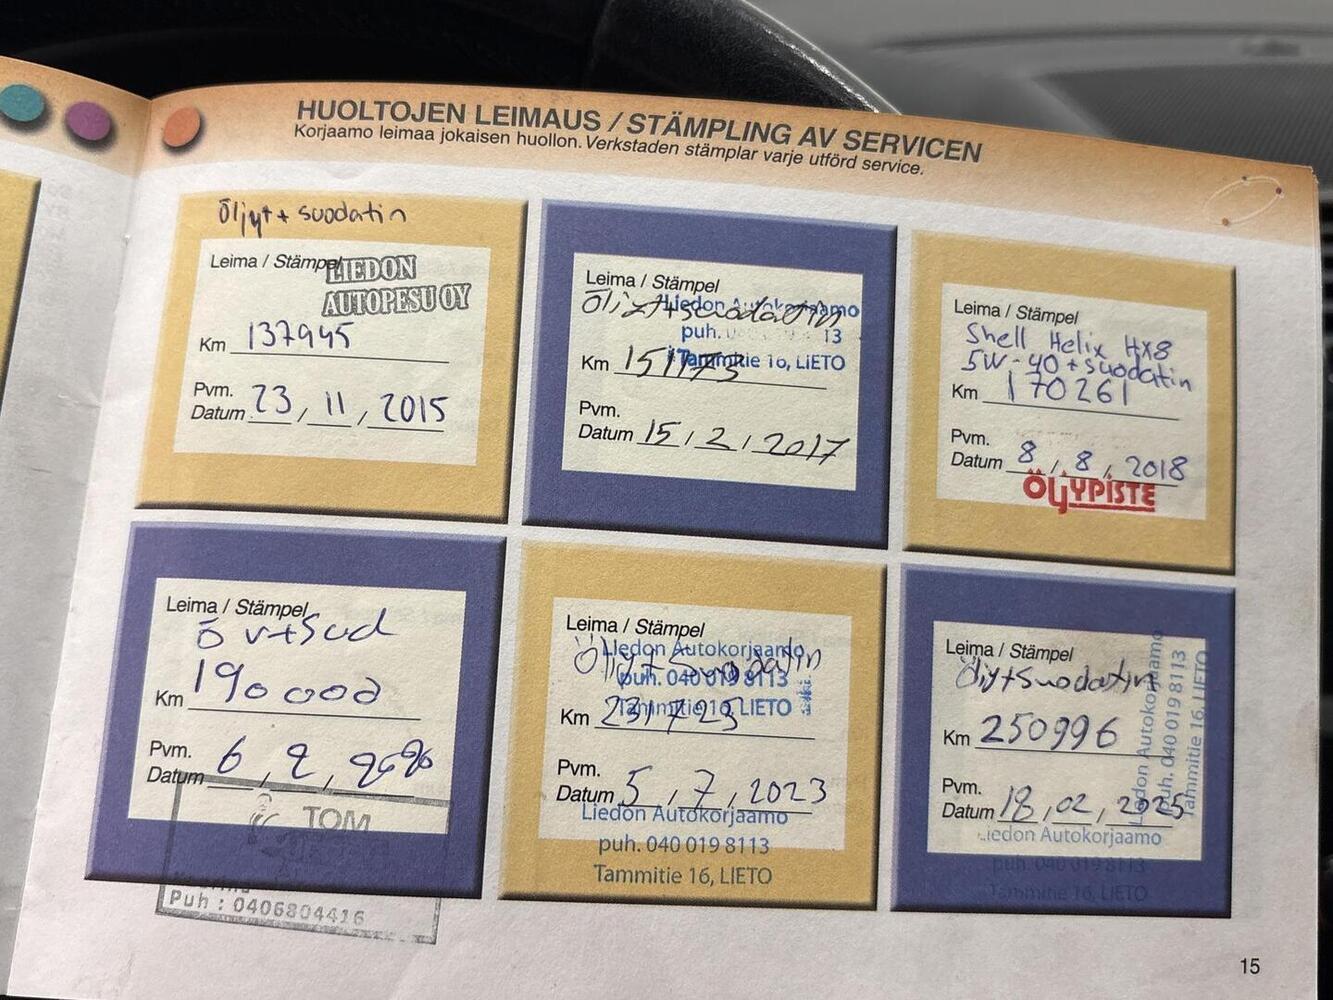 HUOLTOJEN LEIMAUS / STÄMPLING AV SERVICEN
Korjaamo leimaa jokaisen huollon. Verkstaden stämplar varje utförd service.
Öljyt + suodatin
Leima / Stämpel
LIEDON
AUTOPESU OY
Km 137945
Pvm.
Datum 23, 11, 2015
Leima / Stämpel
Liedon Autokorjaamo
Öljyt+suodatin
puh. 13
Tammitie 16, LIETO
Km 151173
Pvm.
Datum 15, 2, 2017
Leima / Stämpel
Shell Helix HX8
5W-40 + suodatin
Km 170261
Pvm.
Datum 8, 8, 2018
ÖLJYPISTE
Leima / Stämpel
Km 190000
Pvm.
Datum 6, 2,
TOM
Puh : 0406804416
Leima / Stämpel
Liedon Autokorjaamo
Öljyt+suodatin
puh. 040 019 8113
Tammitie 16, LIETO
Km 231723
Pvm.
Datum 5, 7, 2023
Liedon Autokorjaamo
puh. 040 019 8113
Tammitie 16, LIETO
Leima / Stämpel
Öljyt+suodatin
Km 250996
Pvm.
Datum 18, 02, 2025
Liedon Autokorjaamo
puh. 040 019 8113
Tammitie 16, LIETO
Liedon Autokorjaamo
puh. 040 019 8113
Tammitie 16, LIETO
15